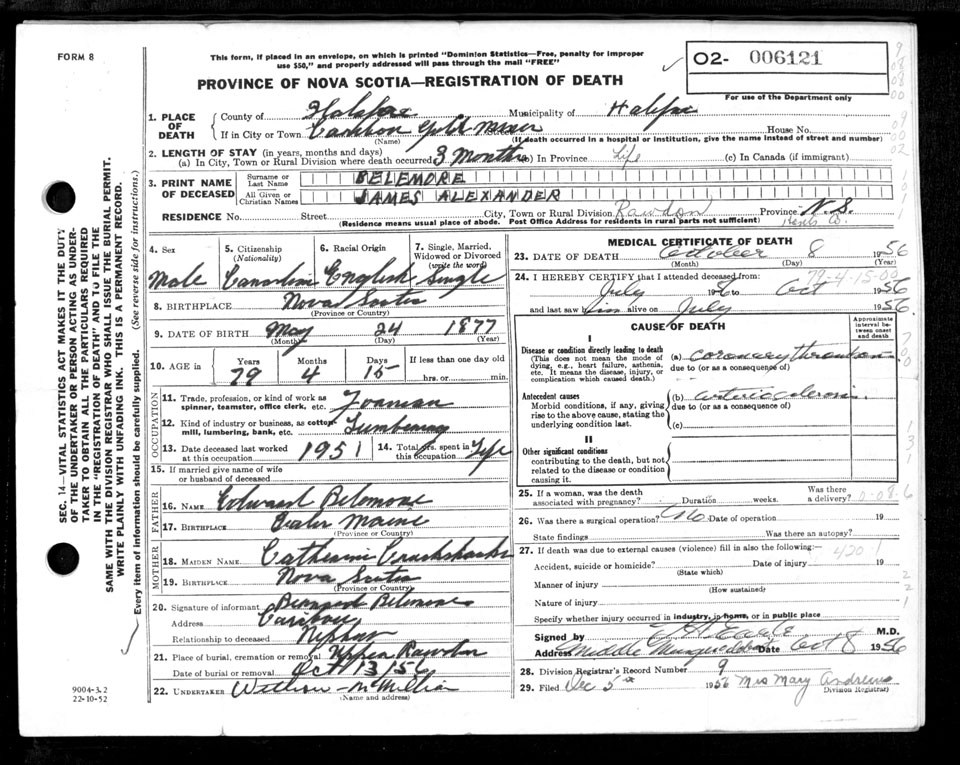 FORM 8
This form, if placed in an envelope, on which is printed "Dominion Statistics—Free, penalty for improper
use $50," and properly addressed will pass through the mail "FREE"
O2- 006121
PROVINCE OF NOVA SCOTIA—REGISTRATION OF DEATH
For use of the Department only
1. PLACE OF DEATH
County of Halifax Municipality of Halifax
If in City or Town Caribou Gold Mines House No.
(Name) (If death occurred in a hospital or institution, give the name instead of street and number)
2. LENGTH OF STAY (in years, months and days)
(a) In City, Town or Rural Division where death occurred 3 Months (b) In Province Life (c) In Canada (if immigrant)
3. PRINT NAME OF DECEASED
Surname or Last Name BELEMORE
All Given or Christian Names JAMES ALEXANDER
RESIDENCE No. Street City, Town or Rural Division Rawdon Province N.S.
(Residence means usual place of abode. Post Office Address for residents in rural parts not sufficient) Hants Co.
4. Sex 5. Citizenship (Nationality) 6. Racial Origin 7. Single, Married, Widowed or Divorced (write the word)
Male Canadian English Single
8. BIRTHPLACE Nova Scotia
(Province or Country)
9. DATE OF BIRTH May 24 1877
(Month) (Day) (Year)
10. AGE in Years Months Days If less than one day old
79 4 15 hrs. or min.
OCCUPATION
11. Trade, profession, or kind of work as spinner, teamster, office clerk, etc. Foreman
12. Kind of industry or business, as cotton mill, lumbering, bank, etc. Lumbering
13. Date deceased last worked at this occupation 1951 14. Total yrs. spent in this occupation Life
15. If married give name of wife or husband of deceased
FATHER
16. NAME Edward Belemore
17. BIRTHPLACE Maine
(Province or Country)
MOTHER
18. MAIDEN NAME Catherine
19. BIRTHPLACE Nova Scotia
(Province or Country)
20. Signature of informant Bernard Belemore
Address Caribou
Relationship to deceased Nephew
21. Place of burial, cremation or removal Upper Rawdon
Date of burial or removal Oct 13/56
22. UNDERTAKER McMillan
(Name and address)
MEDICAL CERTIFICATE OF DEATH
23. DATE OF DEATH October 8 1956
(Month) (Day) (Year)
24. I HEREBY CERTIFY that I attended deceased from 79-4-15-00
July 1956 to Oct 1956
and last saw him alive on July 1956
CAUSE OF DEATH
Approximate interval between onset and death
I
Disease or condition directly leading to death
(This does not mean the mode of dying, e.g., heart failure, asthenia, etc. It means the disease, injury, or complication which caused death.)
(a) coronary thrombosis
due to (or as a consequence of)
Antecedent causes
Morbid conditions, if any, giving rise to the above cause, stating the underlying condition last.
(b) arteriosclerosis
due to (or as a consequence of)
(c)
II
Other significant conditions
contributing to the death, but not related to the disease or condition causing it.
25. If a woman, was the death associated with pregnancy? Duration weeks. Was there a delivery?
26. Was there a surgical operation? No Date of operation 19
State findings Was there an autopsy?
27. If death was due to external causes (violence) fill in also the following:— 420-1
Accident, suicide or homicide? Date of injury 19
(State which)
Manner of injury
(How sustained)
Nature of injury
Specify whether injury occurred in industry, in home, or in public place
Signed by M.D.
Address Middle Musquodoboit Date Oct 8 1956
28. Division Registrar's Record Number 9
29. Filed Dec 5th 1956 Mrs Mary Andrews
Division Registrar
SEC. 14—VITAL STATISTICS ACT MAKES IT THE DUTY
OF THE UNDERTAKER OR PERSON ACTING AS UNDER-
TAKER TO OBTAIN ALL THE PARTICULARS REQUIRED
IN THE "REGISTRATION OF DEATH" AND TO FILE THE
SAME WITH THE DIVISION REGISTRAR WHO SHALL ISSUE THE BURIAL PERMIT.
WRITE PLAINLY WITH UNFADING INK. THIS IS A PERMANENT RECORD.
Every item of information should be carefully supplied. (See reverse side for instructions.)
9004-3.2
22-10-52